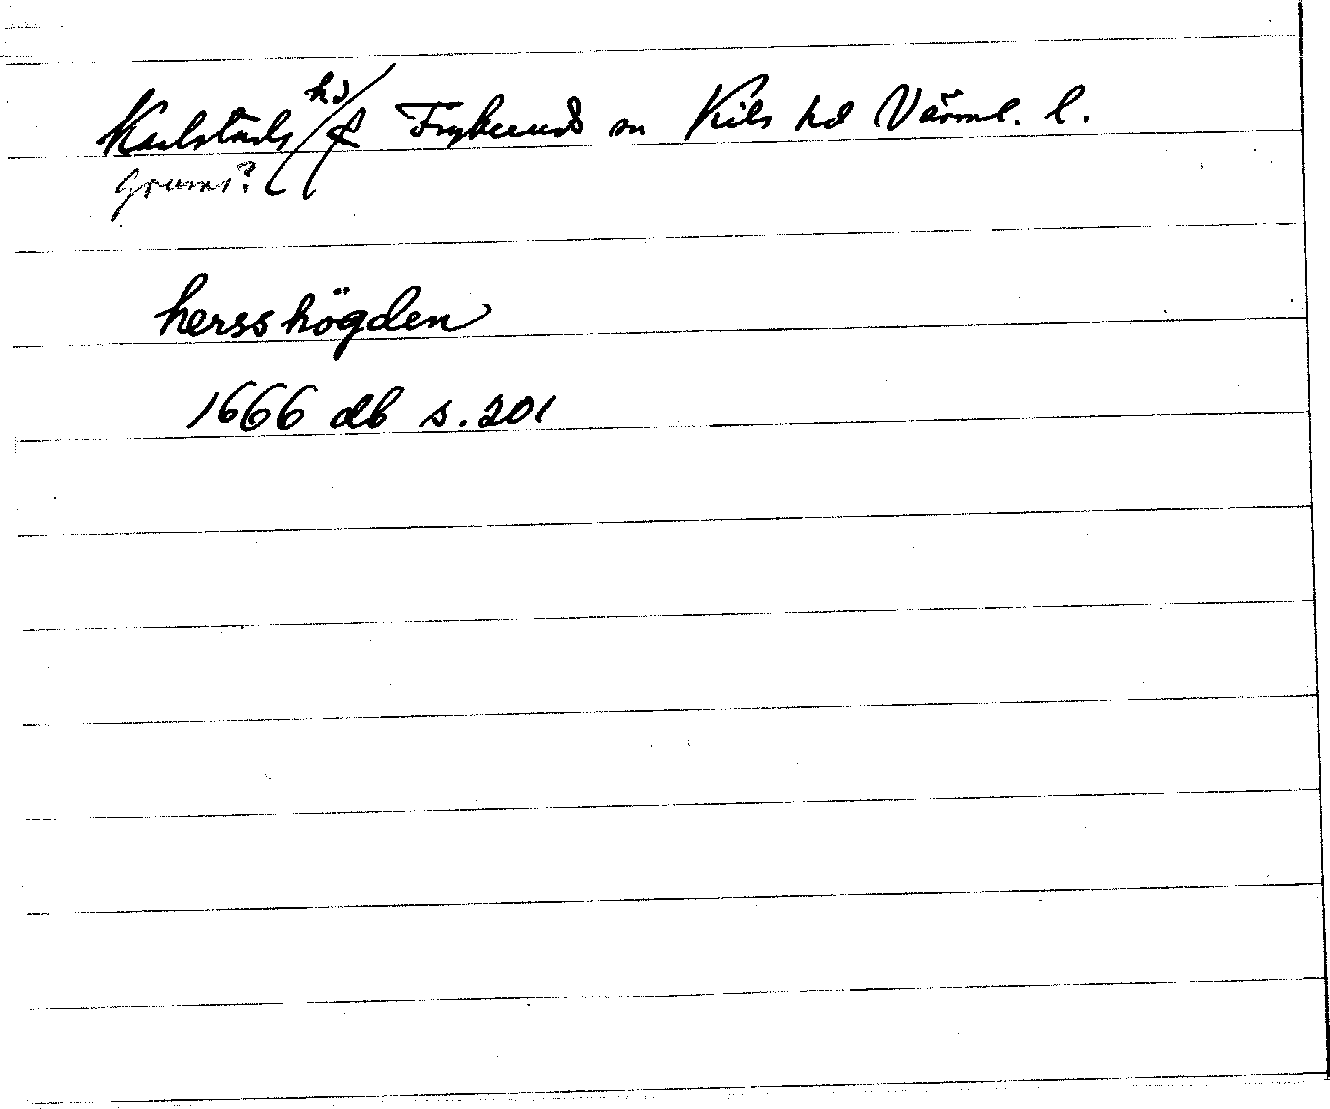 Karlstads hd / f Frykerud sn Kils hd Värml. l.
Grums?
hersshögden
1666 db s. 201